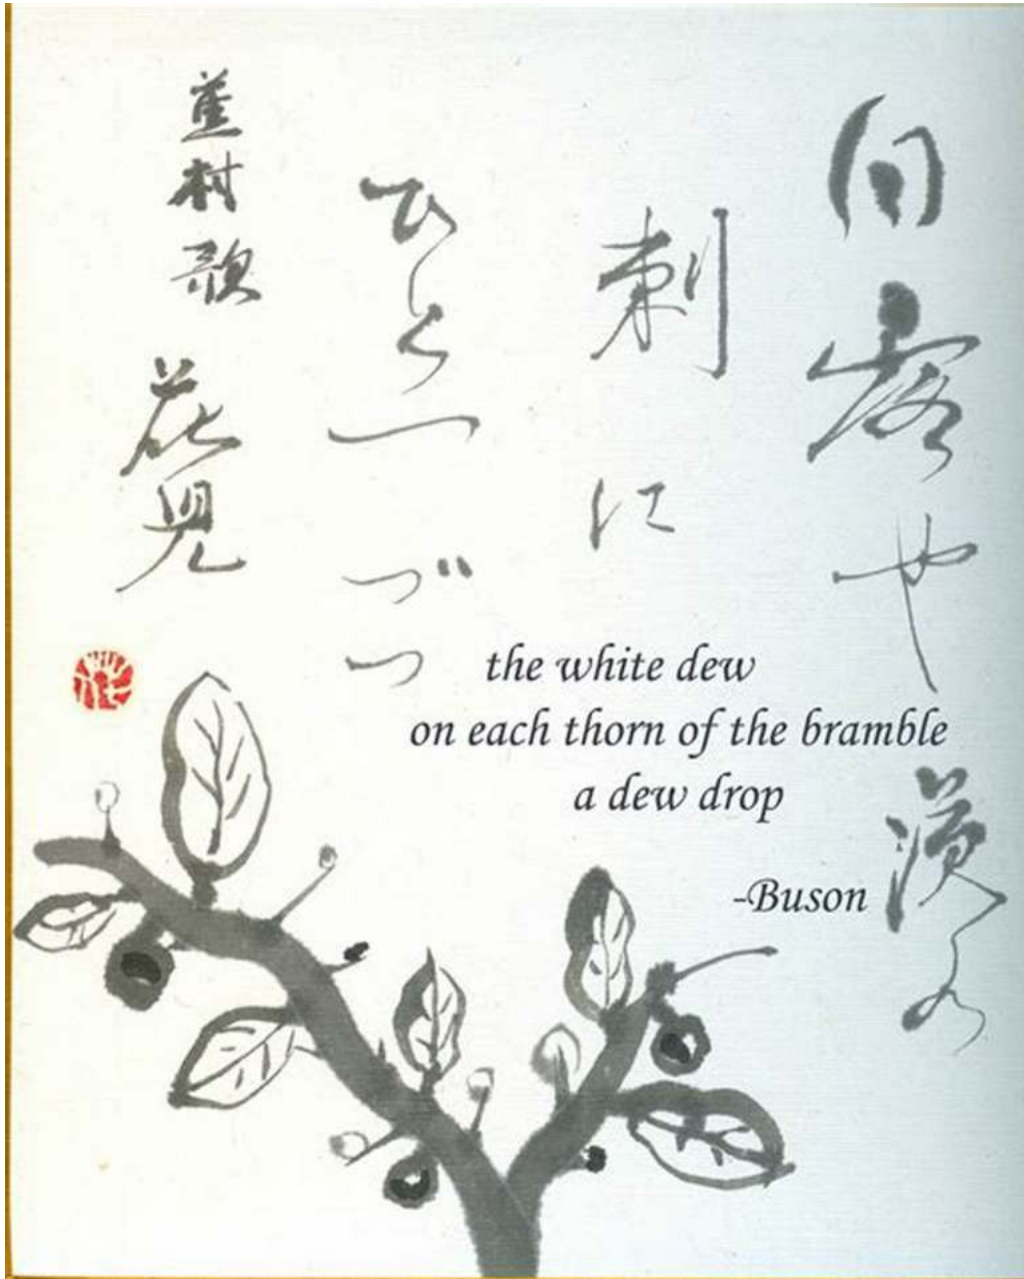 白露や茨の
刺に
ひとつづつ
蕪村歌
花見
the white dew
on each thorn of the bramble
a dew drop
-Buson